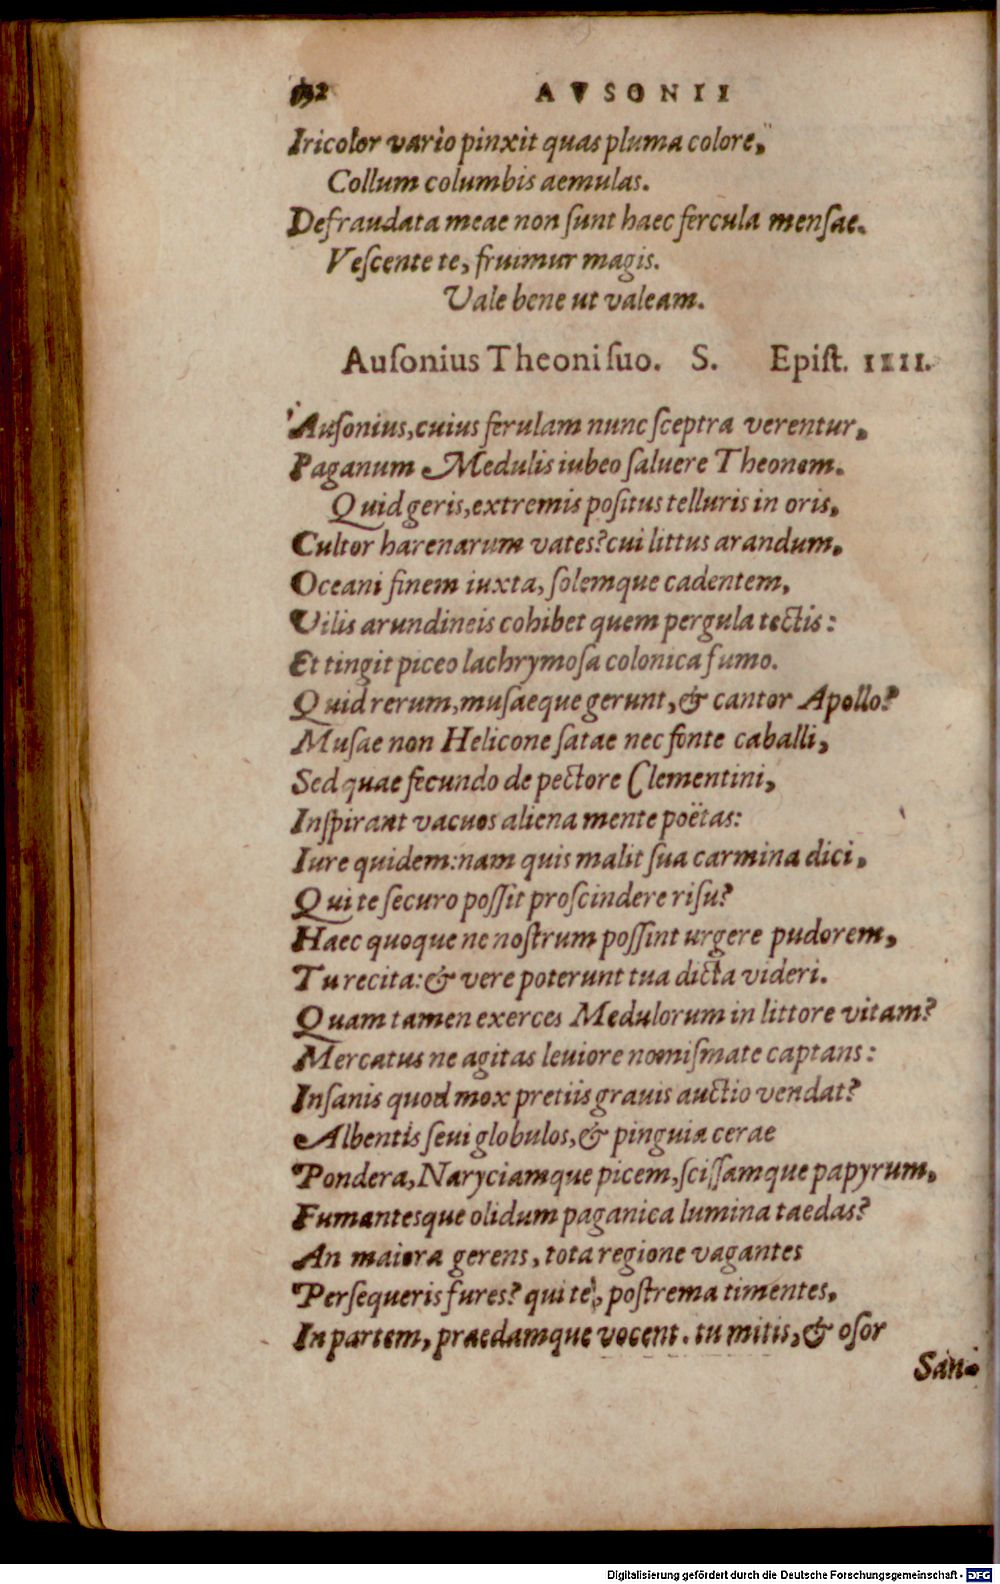 AVSONII
Iricolor vario pinxit quas pluma colore,
Collum columbis aemulas.
Defraudata meae non ſunt haec fercula menſae.
Veſcente te, fruimur magis.
Vale bene ut valeam.
Auſonius Theoni ſuo. S. Epiſt. IIII.
Auſonius, cuius ferulam nunc ſceptra verentur,
Paganum Medulis iubeo ſaluere Theonem.
Quid geris, extremis poſitus telluris in oris,
Cultor harenarum vates? cui littus arandum,
Oceani finem iuxta, ſolemque cadentem,
Vilis arundineis cohibet quem pergula tectis:
Et tingit piceo lachrymoſa colonica fumo.
Quid rerum, muſaeque gerunt, & cantor Apollo?
Muſae non Helicone ſatae nec fonte caballi,
Sed quae fecundo de pectore Clementini,
Inſpirant vacuos aliena mente poëtas:
Iure quidem: nam quis malit ſua carmina dici,
Qui te ſecuro poſſit proſcindere riſu?
Haec quoque ne noſtrum poſſint urgere pudorem,
Tu recita: & vere poterunt tua dicta videri.
Quam tamen exerces Medulorum in littore vitam?
Mercatus ne agitas leuiore nomiſmate captans:
Inſanis quod mox pretiis grauis auctio vendat?
Albentis ſeui globulos, & pinguia cerae
Pondera, Naryciamque picem, ſciſſamque papyrum,
Fumantesque olidum paganica lumina taedas?
An maiora gerens, tota regione vagantes
Perſequeris fures? qui te, poſtrema timentes,
In partem, praedamque vocent. tu mitis, & oſor
San-
Digitalisierung gefördert durch die Deutsche Forschungsgemeinschaft - DFG